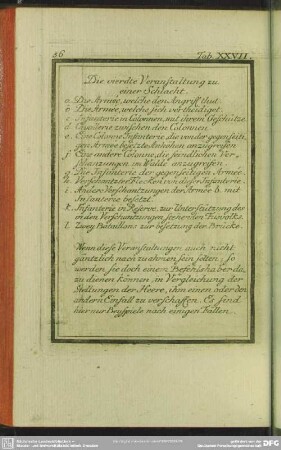 56 Tab. XXVII.
Die vierdte Veranstaltung zu
einer Schlacht.
a. Die Armée, welche den Angriff thut.
b. Die Armée, welche sich vertheidiget.
c. Infanterie in Colonnen, mit ihrem Geschütze.
d. Cavalerie zwischen den Colonnen
e. Eine Colonne Infanterie, die von der gegenseiti-
gen Armée besetzte Anhöhen anzugreifen
f. Eine andere Colonne, die feindlichen Ver-
im Walde anzugreifen.
g. Die Infanterie der gegenseitigen Armée.
h. Verschantzte Flecken von dieser Infanterie.
i. Andere Verschantzungen der Armée b. mit
Infanterie besetzt.
k. Infanterie in Reserve, zur Unterstützung des
in den Verschantzungen stehenden Fusvolks.
l. Zwey Bataillons zur besetzung der Brücke.
Wenn diese Veranstaltungen auch nicht
gäntzlich nachzuahmen sein solten; so
werden sie doch einem Befehlshaber da-
zu dienen können, in Vergleichung der
Stellungen der Heere, ihm einen oder den
andern Einfall zu verschaffen. Es sind
hier nur Beyspiele nach einigen Fällen.